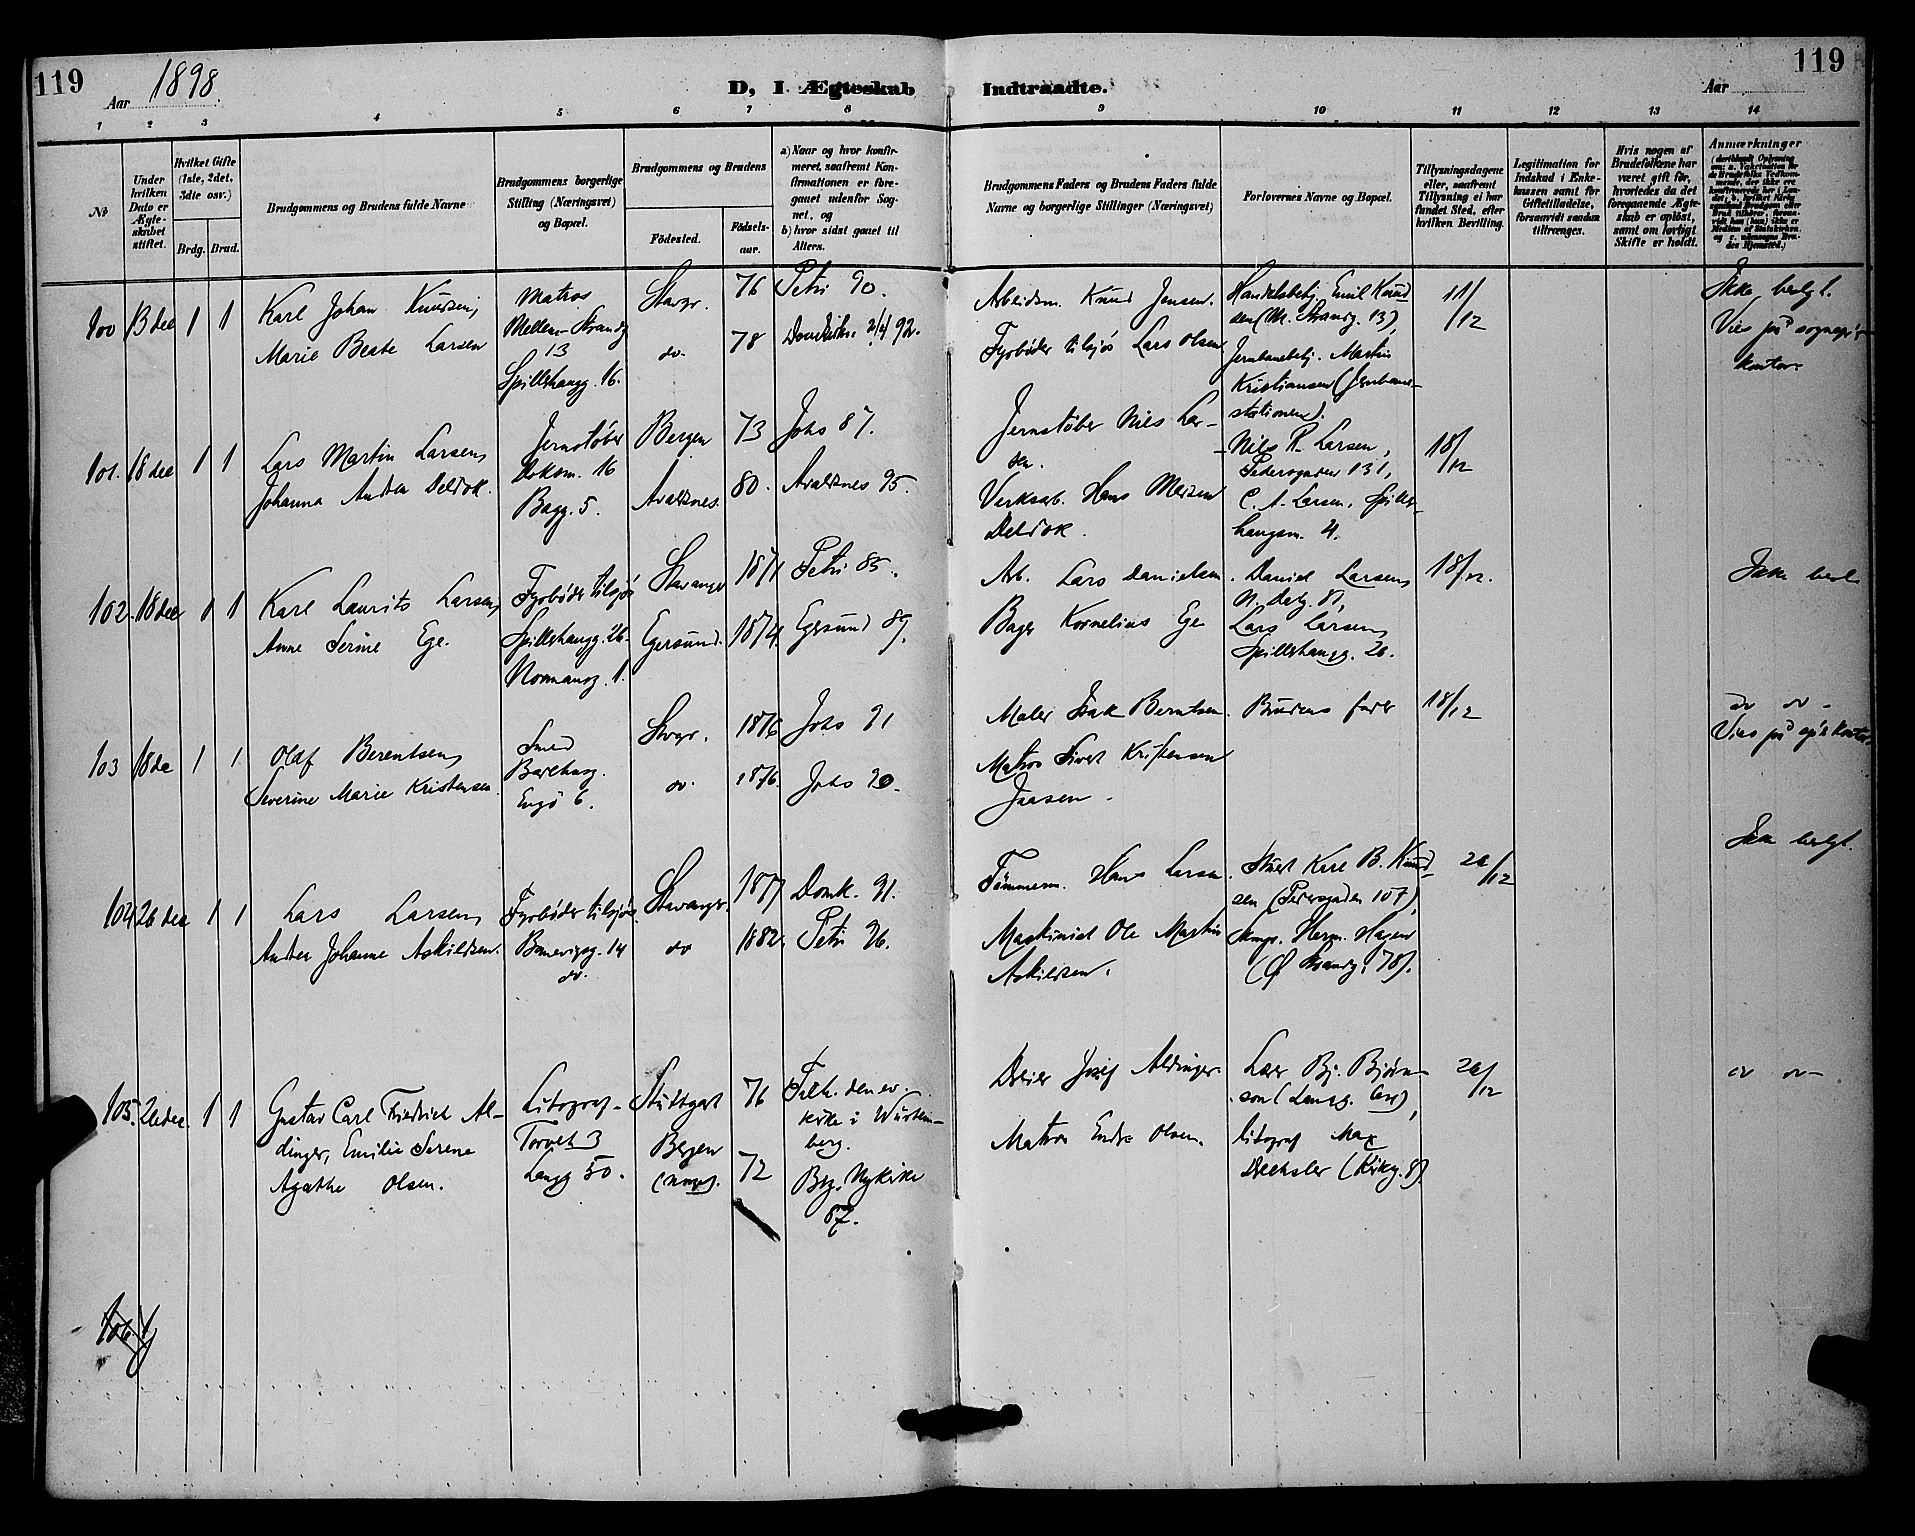 119
Aar 1898.
D, I Ægteskab Indtraadte.
Aar
119
1 2 3 4 5 6 7 8 9 10 11 12 13 14
No
Under hvilken Dato er Ægteskabet stiftet.
Hvilket Gifte (1ste, 2det, 3die osv.)
Brdg. Brud.
Brudgommens og Brudens fulde Navne
Brudgommens borgerlige Stilling (Næringsvei) og Bopæl.
Brudgommens og Brudens
Fødested.
Fødselsaar.
a) Naar og hvor konfirmeret, saafremt Konfirmationen er foregaaet udenfor Sognet, og
b) hvor sidst gaaet til Alters.
Brudgommens Faders og Brudens Faders fulde Navne og borgerlige Stillinger (Næringsvei)
Forlovernes Navne og Bopæl.
Tillysningsdagene eller, saafremt Tillysning ei har fundet Sted, efter hvilken Bevilling.
Legitimation for Indskud i Enkekassen samt for Giftetilladelse, forsaavidt saadan tiltrænges.
Hvis nogen af Brudefolkene har været gift før, hvorledes da det foregaaende Ægteskab er opløst, samt om lovligt Skifte er holdt.
Anmærkninger
100 13 dec 1 1
Karl Johan Knudsen,
Marie Beate Larsen
Matros
Mellem Strandg
13
Spillehaugg. 16.
Stavgr. 76 Petri 90.
do. 78 Domkirke 2/4 92.
Arbeidsm. Knud Jensen.
Fyrbøder tilsjøs Lars Olsen
Handelsbetj. Emil Knudsen (M. Strandg. 13),
Jernbanebetj. Martin
Kristiansen (Jernbanestationen).
11/12
Ikke beslgt.
Viet på sognepr.
kontor
101. 18 dec 1 1
Lars Martin Larsen,
Johanna Andrea Deldok.
Jernstøber
Bagg. 5.
Bergen 73 Johs 87.
Avaldsnes 80. Avaldsnes 95.
Jernstøber Nils Larsen.
Verksarb. Hans
Deldok.
Nils R. Larsen,
Pedersgaden 131,
C. A. Larsen, Spillehaugsm. 4.
18/12
102. 18 dec 1 1
Karl Laurits Larsen,
Anne Serine Ege.
Fyrbøder tilsjøs
Spillehaugg. 26
Normansg. 1.
Stavanger 1871 Petri 85.
Egersund. 1874. Egersund 89.
Arb. Lars Danielsen.
Bager Kornelius Ege
Daniel Larsen,
Lars Larsen,
Spillehaugg. 26.
18/12.
Ikke besl
103 18 de 1 1
Olaf Berentsen,
Severine Marie Kristensen.
Smed
Engø 6.
Stvgr. 1876 Johs 91
do. 1876. Johs 90.
Maler Isak Berntsen.
Matros Sivert Kristensen
Brudens fader
18/12
do do
Viet på spr kontor
104 26 dec 1 1
Lars Larsen,
Andrea Johanne Askildsen.
Fyrbøder tilsjøs.
Banevigsg. 14
do.
Stavanger. 1877 Domk. 91.
do 1882. Petri 96.
Tømmerm. Hans Larsen
Maskinist Ole Martin
Askildsen.
Stuert Karl B. Knudsen (Pedersgaden 107),
Herm. Hagen
(Ø Strandg. 78).
Ikke beslgt.
105. 26 dec 1 1
Gustav Carl Friedrich Aldinger,
Emilie Serene
Agathe Olsen.
Litograf
Torvet 3
Langg 50.
Stuttgart 76
Bergen 72
den ev.
kirke i Würtemberg.
Brg. Nykirke
87.
Dreier Josef Aldinger
Matros Endre Olsen.
Lærer Bj. Bjørnson
litograf Max
Drechsler (Kirkg. 8)
do do
106